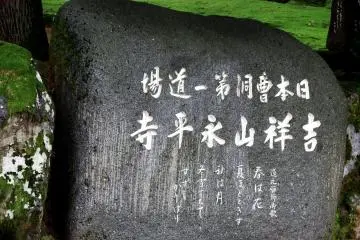 日本曹洞第一道場
吉祥山永平寺
道元禅師御歌
春は花
夏ほととぎす
秋は月
冬雪さえて
すずしかりけり